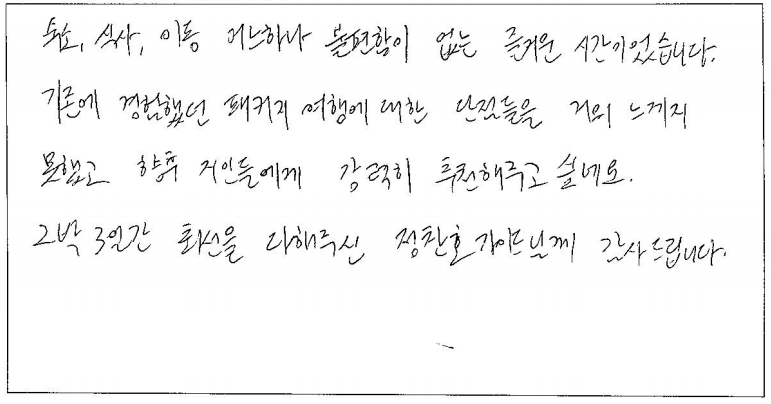 숙소, 식사, 이동 어느하나 불편함이 없는 즐거운 시간이었습니다.
기존에 경험했던 패키지 여행에 대한 단점들을 거의 느끼지
못했고 향후 지인들에게 강력히 추천해주고 싶네요.
2박 3일간 최선을 다해주신 정찬호 가이드님께 감사드립니다.